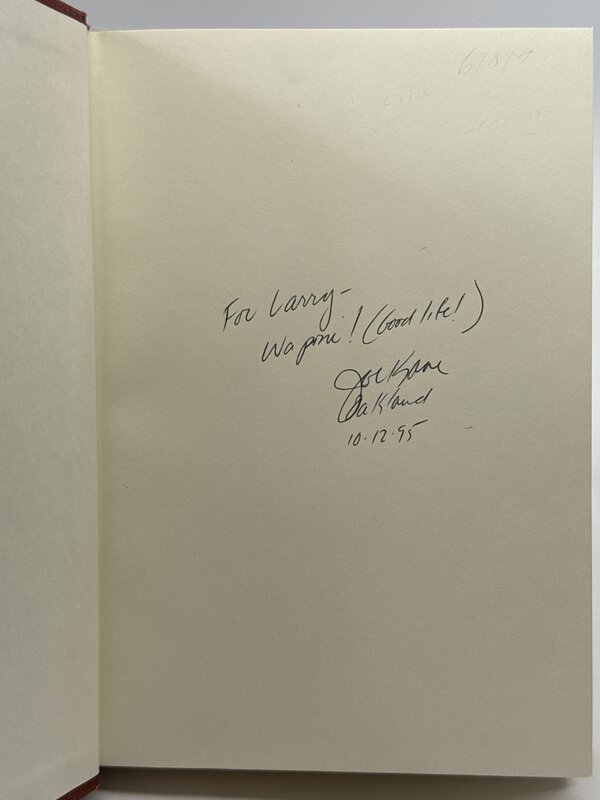 For Larry-
Waponi! (Good life!)
Joe Kane
Oakland
10.12.95